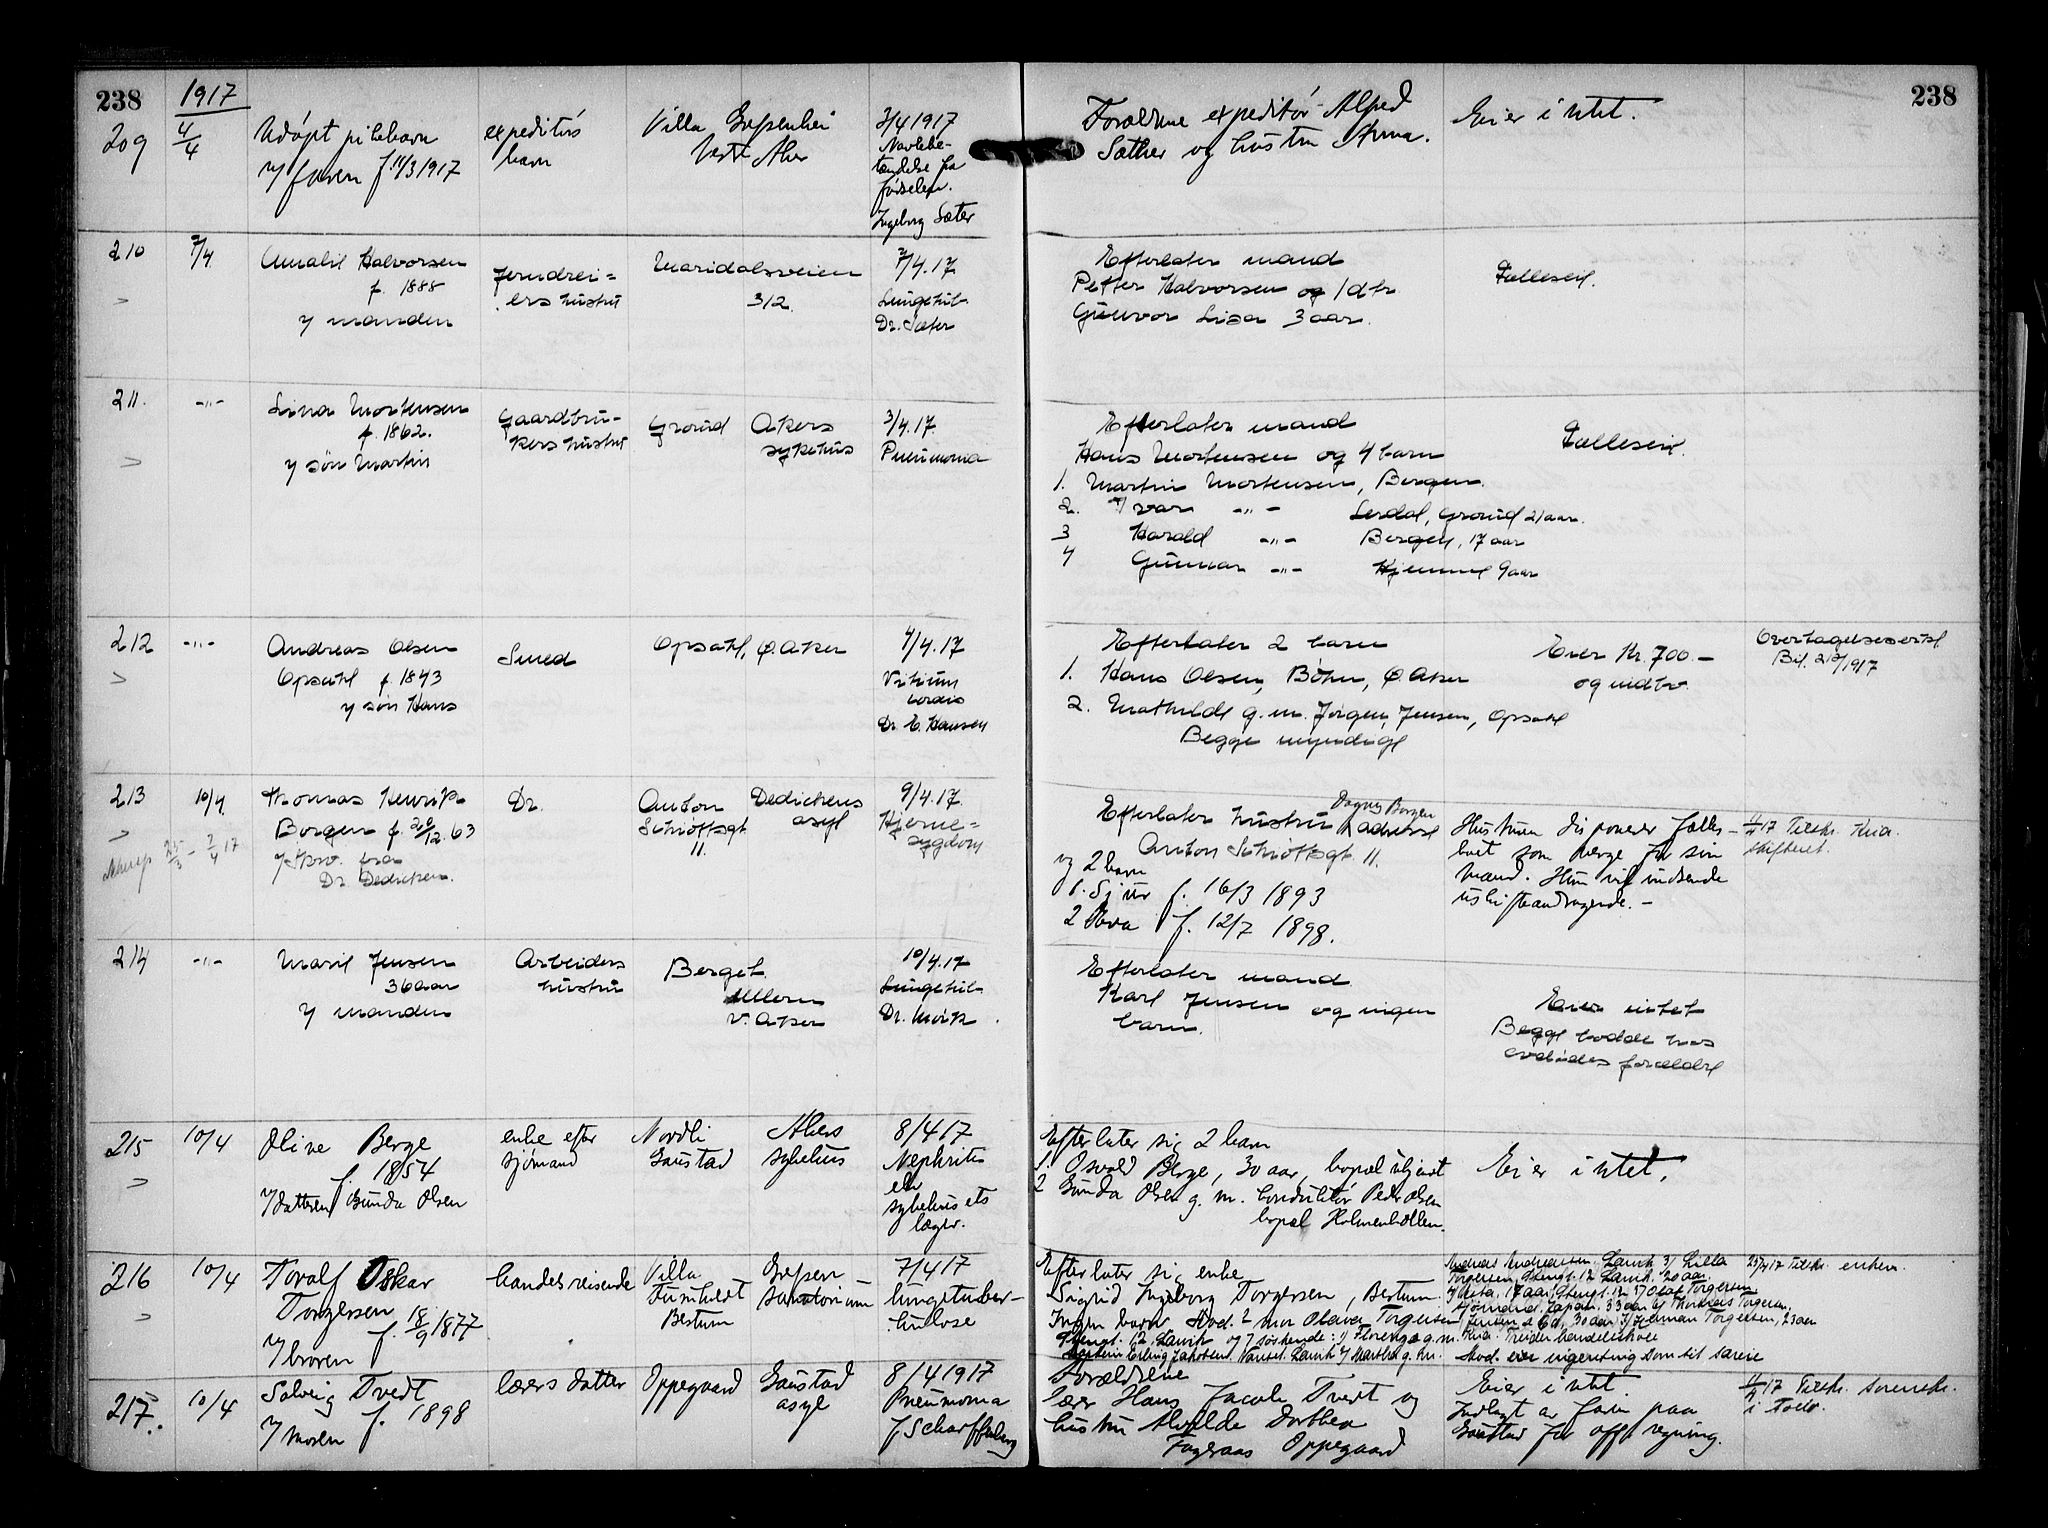 238
1917
238
209
4/4
Udøpt pikebarn
v/ faren f. 11/3 1917
expeditørs
barn
Villa Grefsenhei
Vestre Aker
2/4 1917
Navlebe-
tændelse fra
fødselen.
Ingeborg Sæter
Forældrene expeditør Alfred
Sæther og hustru Anna.
Eier intet.
210
7/4
Amalie Halvorsen
f. 1888
v/ manden
Jerndrei-
ers hustru
Maridalsveien
312.
7/4.17
Lungetub.
Dr. Sæter
Efterlater mand
Petter Halvorsen og 1 dtr
Gunvor Lisa 3 aar.
Fælleseie.
211.
-"-
Lina Mortensen
f. 1862.
v/ søn Martin
Gaardbru-
kers hustru
Grorud
Akers
sykehus
3/4.17.
Pneumonia
Efterlater mand
Hans Mortensen og 4 barn
1. Martin Mortensen, Bergen.
2. Ivar -"- Lerdal, Grorud 21 aar.
3 Harald -"- Bergen, 17 aar
4 Gunnar -"- Hjemme 9 aar
Fælleseie.
212
-"-
Andreas Olsen
Opsahl f. 1843
v/ søn Hans
Smed
Opsahl, Ø. Aker
4/4.17
Vitium
cordis
Dr. E. Hansen
Efterlater 2 barn
1. Hans Olsen, Bøler, Ø. Aker
2. Mathilde g.m. Jørgen Jensen, Opsahl
Begge myndige
Eier Kr. 700.-
og indbo.
Overtagelseserkl
Bil. 212/1917
213
10/4
Thomas Henrik
Borgen f. 20/12.63
v/ skr. fra
Dr. Dedichen.
Dr.
Anton
Schiøttsgt
11.
Dedichens
asyl
9/4.17.
Hjerne-
sygdom
Efterlater hustru Dagny Borgen
adresse
Anton Schiøttsgt. 11.
og 2 barn
1. Sjur f. 16/3 1893
2 f. 12/7 1898.
Hustruen disponerer fælles-
boet som verge for sin
mand. Hun vil indsende
uskifteandragende.-
11/4 17 Tilskr. Kria.
skifteret.
214
-"-
Marie Jensen
36 aar
v/ manden
Arbeiders
hustru
Berget
Ullern
V. Aker
10/4.17
Lungetub.
Dr. Mørk.
Efterlater mand
Karl Jensen og ingen
barn.
Eier intet
Begge bodde hos
avdødes forældre
215
10/4
Olive Berge
f. 1854
v/ datteren Gunda Olsen
enke efter
sjømand
Nordli
Gaustad
Akers
sykehus
8/4 17
Nephritis
sykehusets
læger.
Efterlater sig 2 barn
1. Osvald Berge, 30 aar, bopæl ukjent
2 Gunda Olsen g.m. konduktør Peder Olsen
bopæl Holmenkollen.
Eier intet.
216
10/4
Torolf Oskar
Torgersen
f. 18/9 1877
v/ broren
handelsreisende
Villa
Furuheldt
Bestum
Grefsen
sanatorium
7/4 17
lungetuber-
kulose
Efterlater sig enke
Sigrid Ingeborg Torgersen, Bestum.
Ingen barn. Avd.s mor Olava Torgersen
12 Larvik og 7 søskende: 1/ Florence g.m.
Erling Jakobsen Larvik 2/ Martha g.m.
Andreas Andreassen, Larvik 3/ Lilla
Torgersen 12 Larvik. 20 aar.
17 aar 5/ Olaf Torgersen
sjømand, Japan, 33 aar 6/ Torgersen
30 aar 7/ Torgersen, 23 aar
Kria. Treider handelsskole
Avd. eier ingenting som til særeie
27/4 17 Tilskr. enken.
217.
10/4
Solveig Tvedt
v/ moren f. 1898
lærers datter
Oppegaard
Gaustad
asyl
8/4 1917
Pneumonia
Scharffenberg
Forældrene
lærer Hans Jacob Tvedt og
hustru Alvilde Dorthea
Fageraas Oppegaard
Eier intet.
Indlagt av faren paa
Gaustad for off. regning.
11/4 17 Tilskr. sorenskr.
i Follo.